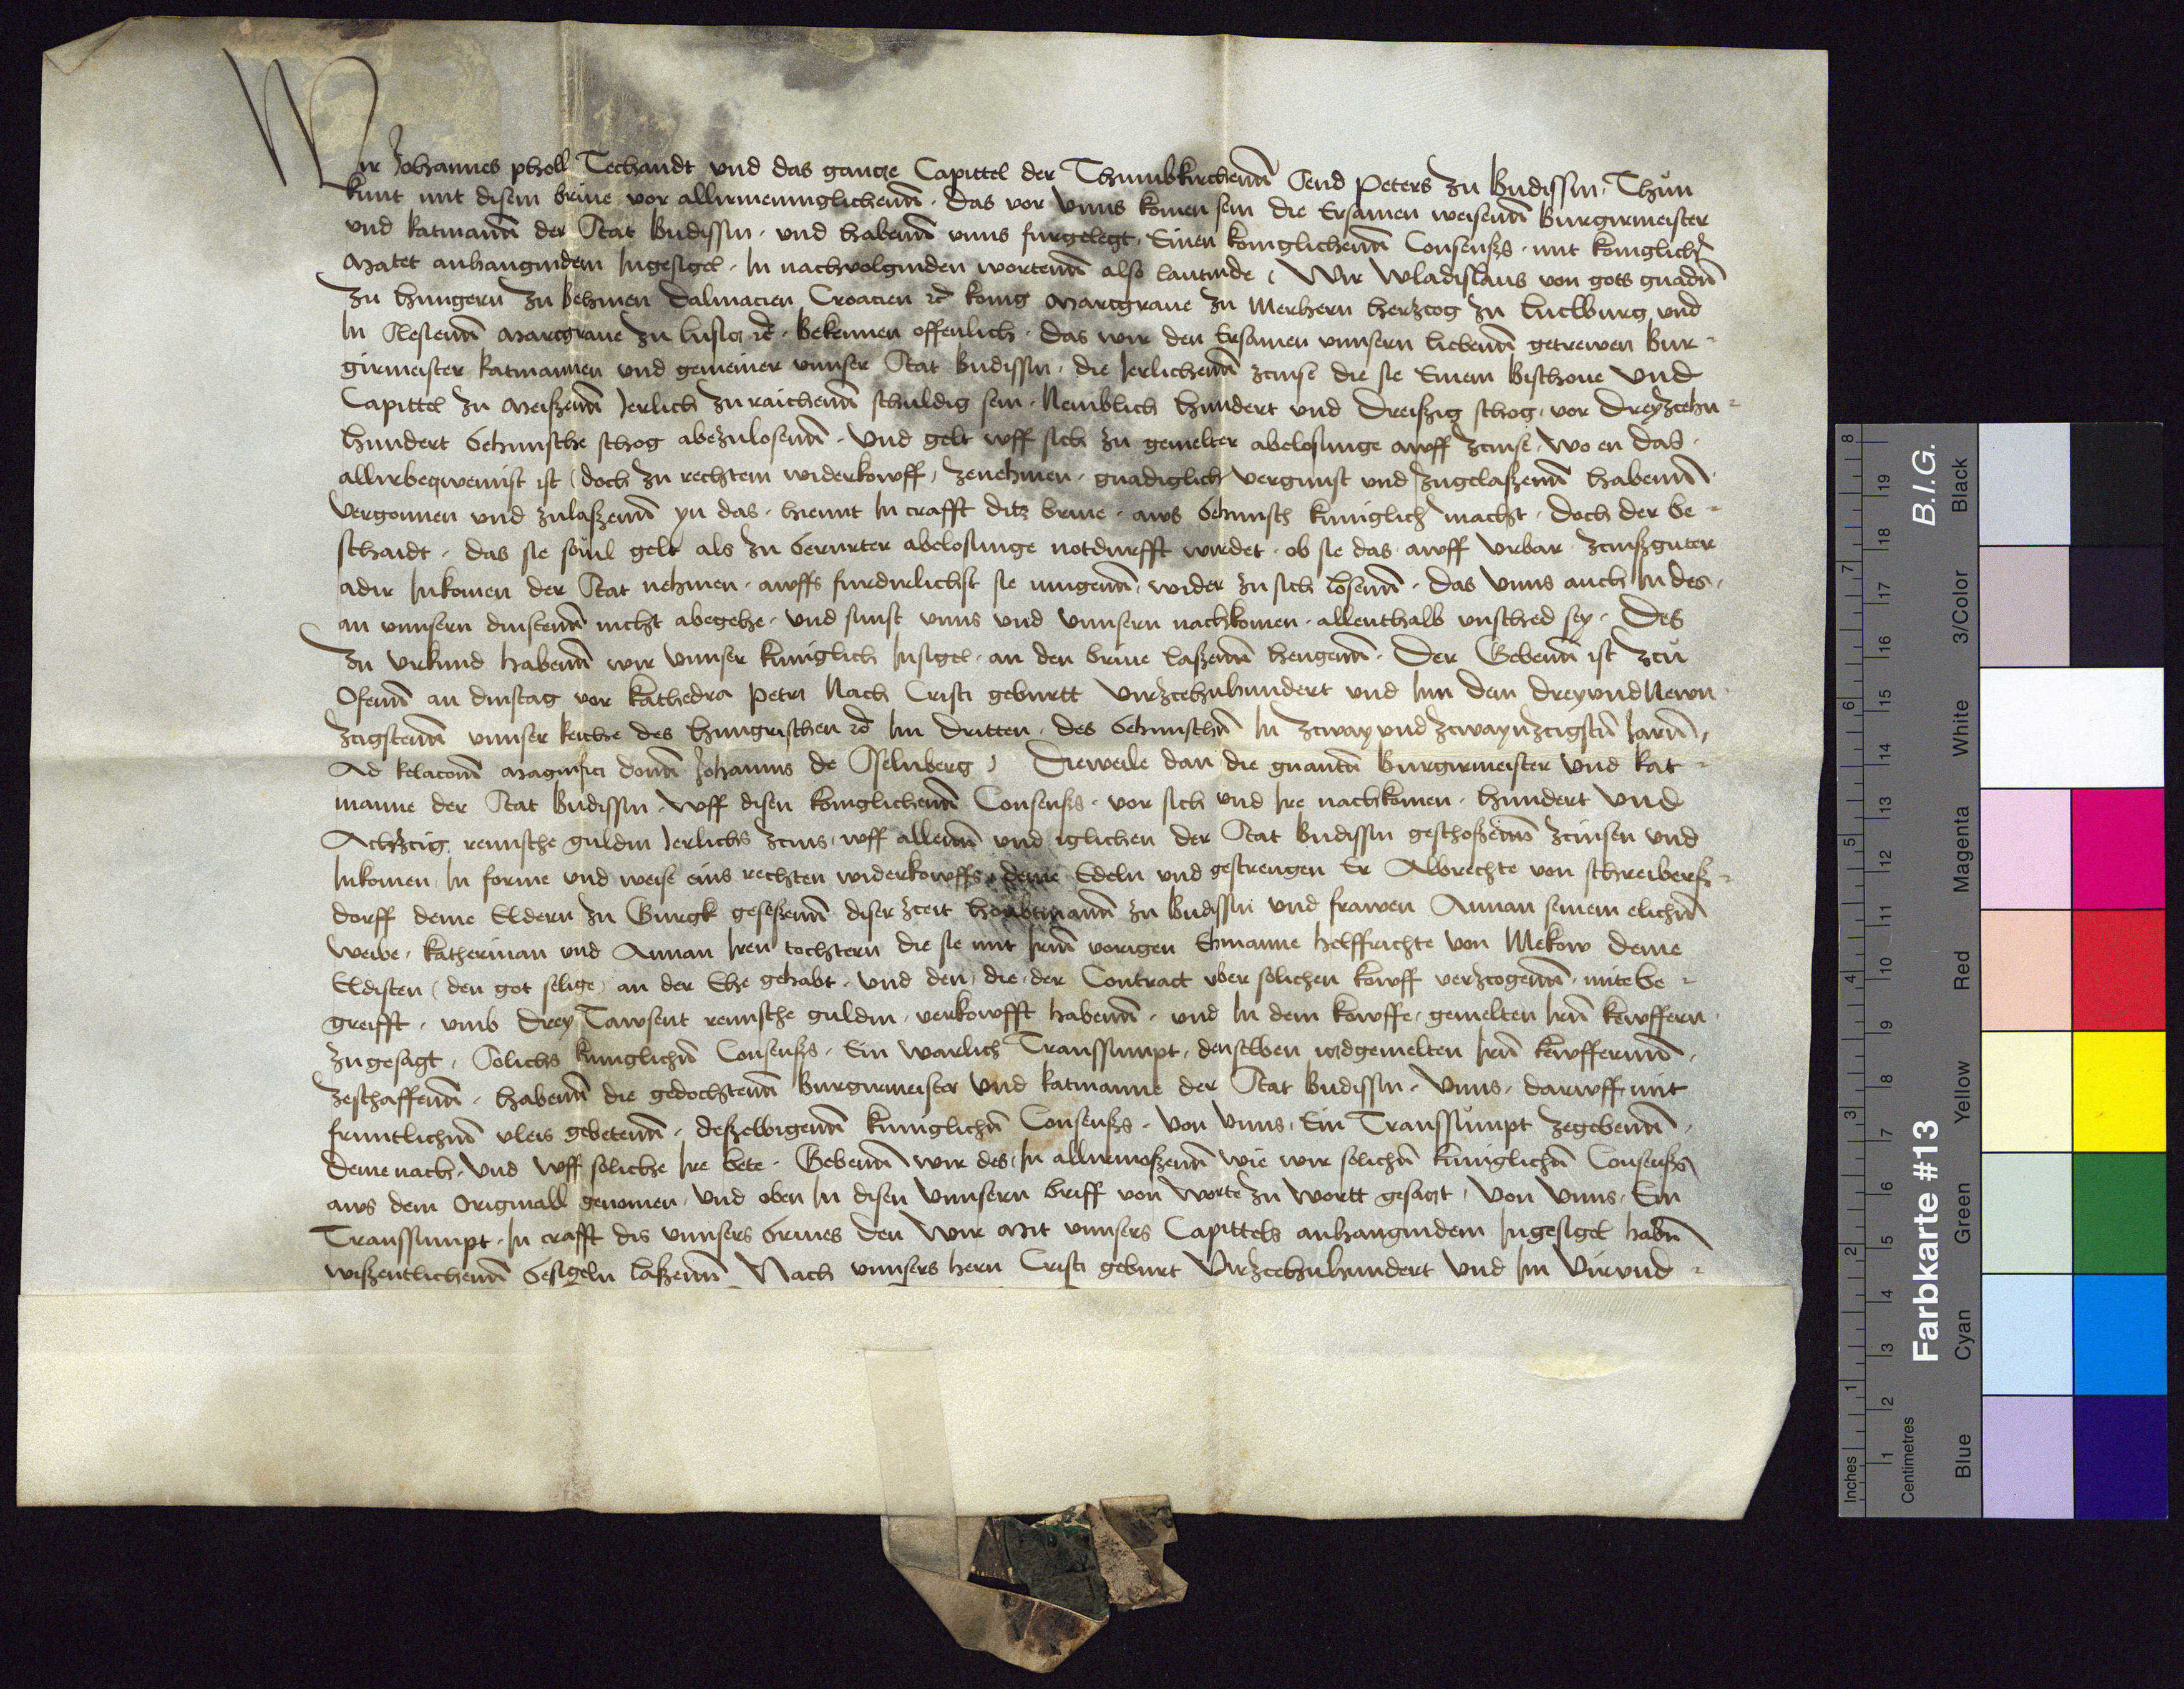 Wir Johannes pholl Techandt vnd das gantze Capittel der Thumbkirchenn Send Peters zu Budissin, Thun
kunt mit disem briue vor allirmenniglichenn, das vor vnns komen sein die Ersamen weisenn Burgirmeister
vnd Ratmann der Stat Budissin, vnd habenn vnns furgelegt, Einen koniglichenn Consenss, mit koniglichr
Matet anhangindem Ingesigel, In nachvolginden wortenn also lautinde, Wir Wladislaus von gots gnadn
zu hungern zu behmen Dalmacien Croacien ec konig Marcgraue zu Merhern herzcog zu Luczburg vnd
In Slesienn Marcgraue zu lusicz ec, bekennen offenlich, das wir den Ersamen vnnsern liebenn getrewen Bur-
girmeister Ratmannen vnd gemeiner vnnser Stat Budissin, die Jerlichenn zcinse die sie Einem Bischoue vnd
Capittel zu Meiszenn Jerlich zu raichenn schuldig sein, Nemblich hundert vnd dreiszig schog, vor dreyzcehn-
hundert behmische schog abezulosenn, vnd gelt vff sich zu gemelter abelosunge awff zcinse, wo en das
allirbeqwemist ist (doch zu rechtem widerkowff) zenehmen, gnadiglich vergunst vnd zugelaszenn habenn
vergonnen vnd zulaszenn yn das, hiemit In crafft ditz briue, aws behmisch kuniglich macht, doch der be-
schaidt, das sie souil gelt als zu berurter abelosunge notdurfft wirdet, ob sie das awff vrbar, zcinszguter
adir Inkomen der Stat nehmen, awffs furdirlichst sie mugenn, wider zu sich losenn, das vnns auch In des
an vnnsern dinstenn nicht abegehe, vnd sunst vnns vnd vnnsern nachkomen, allenthalb vnsched sey, Des
zu vrkund habenn wir vnnser kuniglich Insigel, an den briue laszenn hengenn, Der Gebenn ist zcu
Ofenn an dinstag vor kathedra petri Nach Cristi geburtt virzcehnhundert vnd Im dem dreyvndNewn
zcigstenn vnnser Reiche des hungrischen ec Im dritten, des behmischn In zcway vnd zcwaynzcigstn Jarn,
Ad Relaconn Magnifici domn Johannis de Schelnberg) Dieweile dan die gnantn Burgirmeister vnd Rat-
manne der Stat Budissin, vff disen koniglichenn Consenss, vor sich vnd Ire nachkomen, hundert vnd
Achzcig rennsche guldin Jerlichs zcins, vff allenn vnd iglichen der Stat Budissin geschoszenn zcinsen vnd
Inkomen, In forme vnd weise eins rechten widerkowffs, deme Edeln vnd gestrengen Er Albrechte von schreibersz-
dorff deme Eldern zu Gurgk geseszenn diser zceit hewbtmann zu Budissin vnd frawen Annan seinem elichn
weibe, katherinan vnd Annan Iren tochtern die sie mit Irem vorigen Ehmanne helffrichte von Mekow deme
Eldisten (den got selige) an der Ehe gehabt, vnd den, die, der Contract vber solichen kowff verzcogenn, mitebe-
greifft, vmb drey Tawsent rennsche guldin, verkowfft habenn, vnd In dem kowffe, gemelten Irn kewffern
zugesagt, Solichs kuniglichn Consenss, Ein warlich Transsumpt, denselben icdgemelten Irn kewffernn,
zeschaffenn, habenn die gedochtenn Burgirmeister vnd Ratmanne der Stat Budissin, vnns, darwff mit
fruntlichm vleis gebetenn, deszelbigenn kuniglichn Consenss, von vnns, Ein Transsumpt zegebenn,
demenach, vnd vff soliche Ire bete, Gebenn wir des, In allirmoszenn wie wir solichn kuniglichn Consenss
aws dem Originall genomen, vnd oben In disen vnnsern briff von worte zu wortt gesatzt, von vnns, Ein
Transsumpt, In crafft dis vnnsers briues den wir Mit vnnsers Capittels anhangindem Ingesigel habn
wiszentlichenn besigeln laszenn Nach vnnsers hern Cristi geburt virzcehnhundert vnd Im virvnd-
Inches
Centimetres
1
2
3
4
5
6
7
8
1
2
3
4
5
6
7
8
9
10
11
12
13
14
15
16
17
18
19
Farbkarte #13
B.I.G.
Blue
Cyan
Green
Yellow
Red
Magenta
White
3/Color
Black